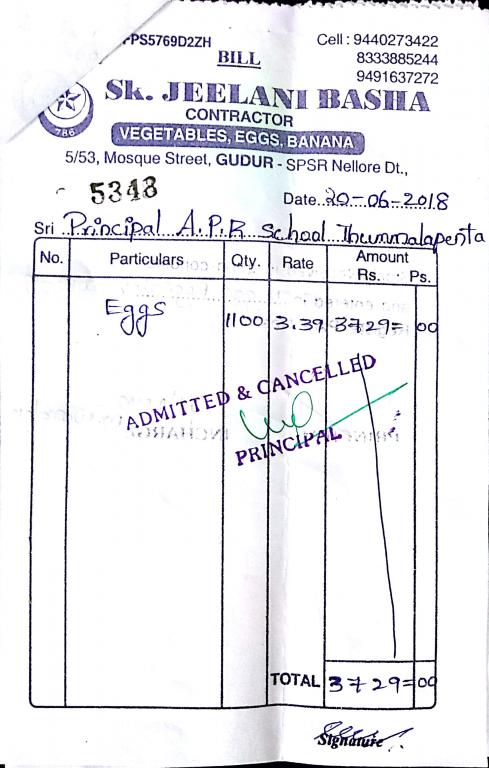 PS5769D2ZH
BILL
Cell : 9440273422
8333885244
9491637272
Sk. JEELANI BASHA
CONTRACTOR
VEGETABLES, EGGS, BANANA
786
5/53, Mosque Street, GUDUR - SPSR Nellore Dt.,
5348
Date..20-06-2018
Sri Principal A.P.R School Thummalapenta
No. Particulars Qty. Rate Amount
Rs. Ps.
Eggs 1100 3.39 3729= 00
ADMITTED & CANCELLED
PRINCIPAL
TOTAL 3729= 00
Signature